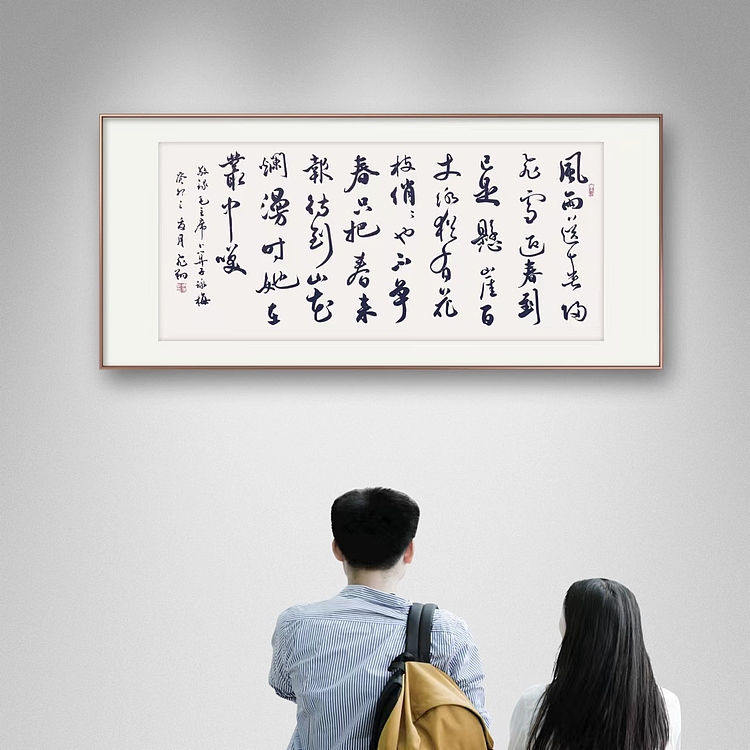 風雨送春歸
飛雪迎春到
已是懸崖百
丈冰猶有花
枝俏〻也不爭
春只把春來
報待到山花
爛漫时她在
叢中咲
敬錄毛主席卜算子詠梅
癸卯之月